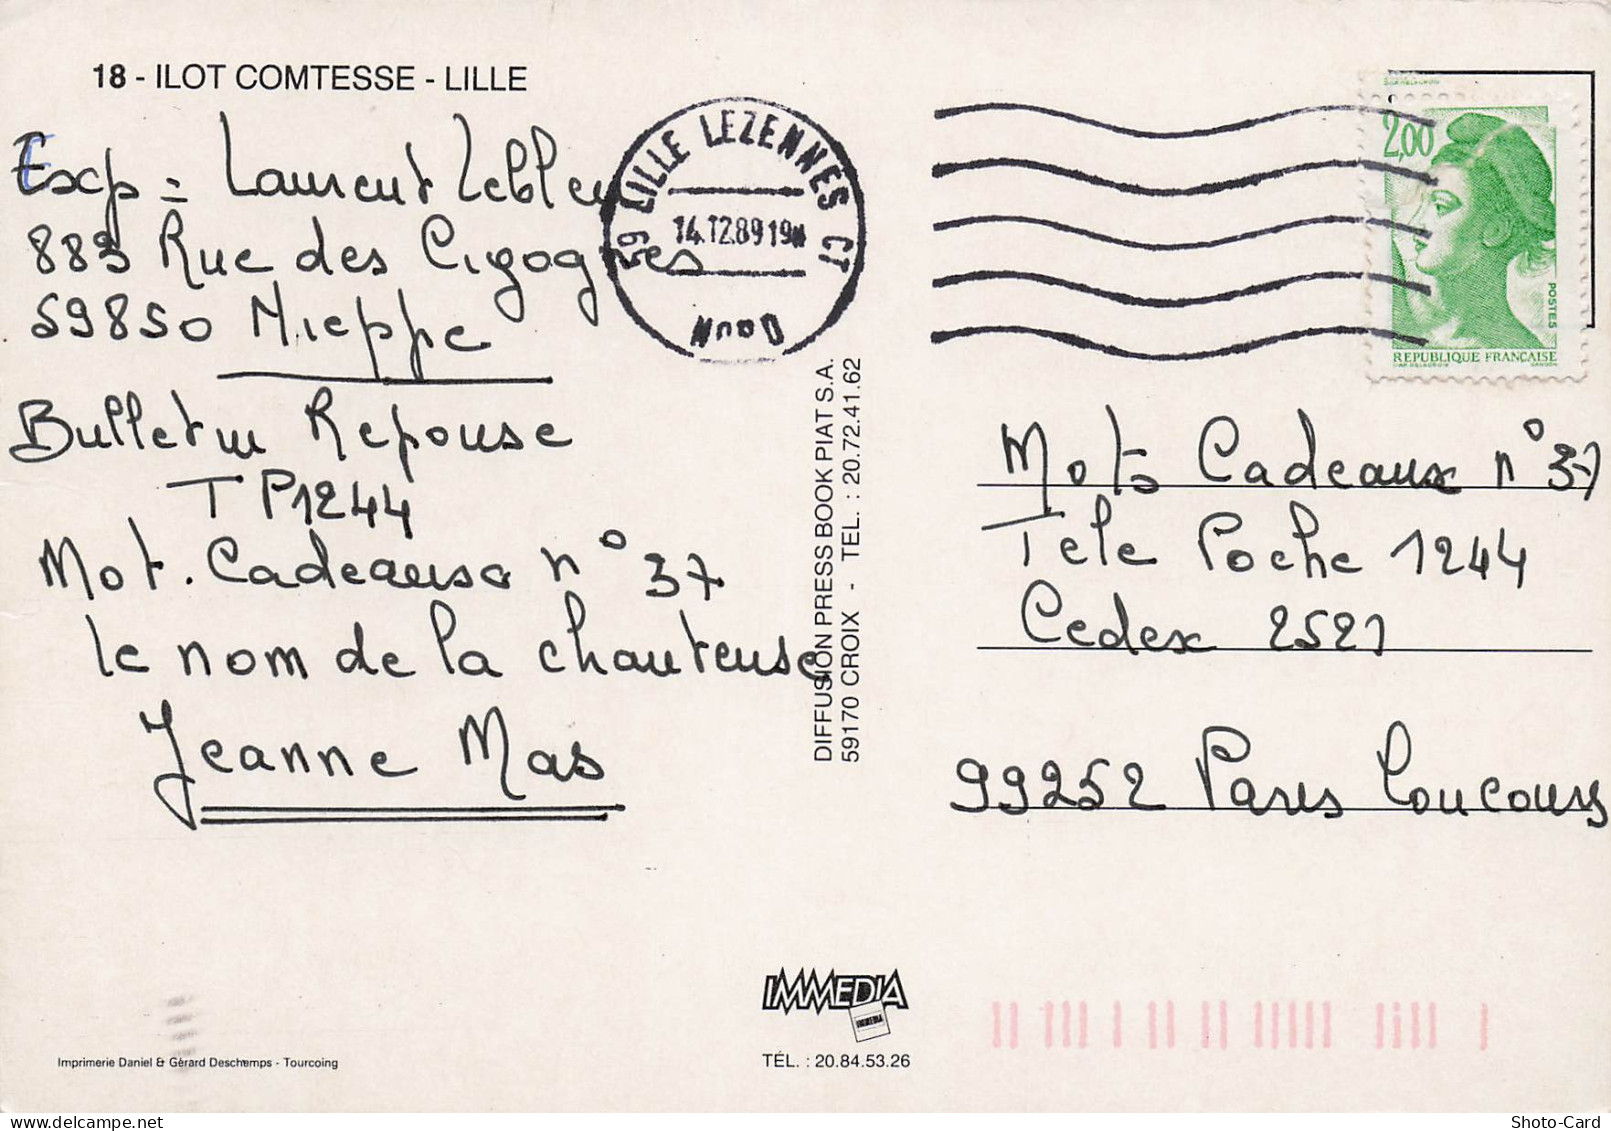 18 - ILOT COMTESSE - LILLE
Exp = Laurent Lebleu
883 Rue des Cigognes
59850 Nieppe
Bulletin Reponse
TP1244
Mot. Cadeauxs n° 37
le nom de la chanteuse
Jeanne Mas
59 LILLE LEZENNES CT
14.12.89 19H
NORD
DIFFUSION PRESS BOOK PIAT S.A.
59170 CROIX - TEL. : 20.72.41.62
2,00
POSTES
REPUBLIQUE FRANÇAISE
D'AP. DELACROIX GANDON
Mots Cadeaux n° 37
Tele Poche 1244
Cedex 2521
99252 Paris Concours
IMMEDIA
IMMEDIA
TÉL. : 20.84.53.26
Imprimerie Daniel & Gérard Deschemps - Tourcoing
Shoto-Card